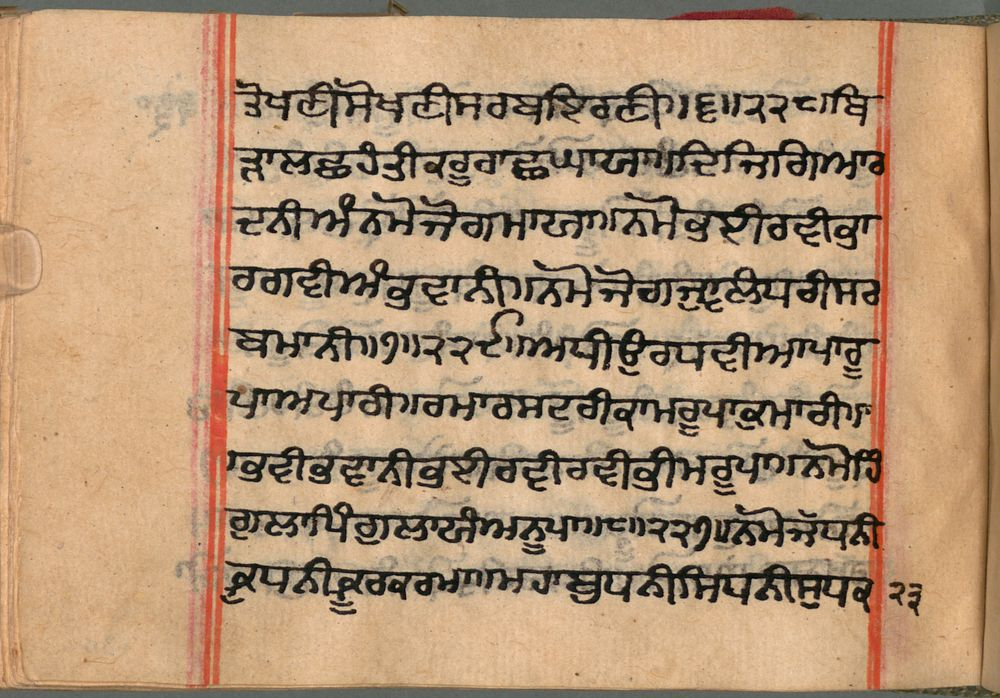 ਤੋਖਣੀਸੋਖਣੀਸਰਬਭਿਰਣੀ॥੬॥੨੨੮॥ਬਿ
ੜਾਲਛਹੰਤੀਕਰੂਰਾਛਘਾਯਾ॥ਦਿਜਿਗਿਆਰ
ਦਨੀਅੰਨਮੋਜੋਗਮਾਯਾ॥ਨਮੋਭੁਈਰਵੀਭਾ
ਰਗਵੀਅੰਭੁਵਾਨੀ॥ਨਮੋਜੋਗਜ੍ਵਾਲੰਧਰੀਸਰ
ਬਮਾਨੀ॥੭॥੨੨੯॥ਅਧੀਉਰਧਵੀਆਪਾਰੂ
ਪਾਅਪਾਰੀ॥ਰਮਾਰਸਟਰੀਕਾਮਰੂਪਾਕੁਮਾਰੀ॥
ਭੁਵੀਭੁਵਾਨੀਭੁਈਰਵੀਰਵੀਭੀਮਰੂਪਾ॥ਨਮੋਹਿੰ
ਗੁਲਾਪਿੰਗੁਲਾਯੰਅਨੂਪਾ॥੮॥੨੨੭॥ਨਮੋਜੋਧਨੀ
ਕ੍ਰੁਧਨੀਕ੍ਰੂਰਕਰਮਾ॥ਮਹਾਬੁਧਨੀਸਿਧਨੀਸੁਧਕ ੨੩